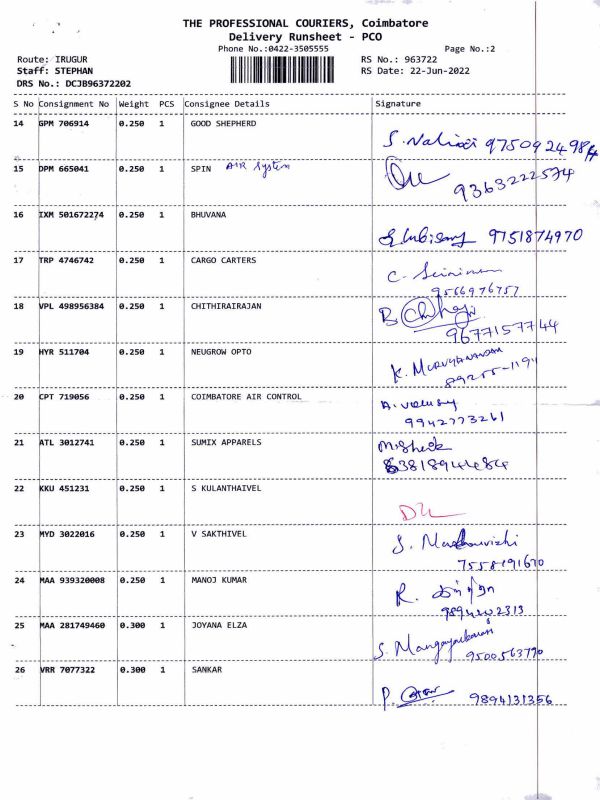 THE PROFESSIONAL COURIERS, Coimbatore
Delivery Runsheet - PCO
Phone No.:0422-3505555 Page No.:2
Route: IRUGUR RS No.: 963722
Staff: STEPHAN RS Date: 22-Jun-2022
DRS No.: DCJB96372202
S No Consignment No Weight PCS Consignee Details Signature
14 GPM 706914 0.250 1 GOOD SHEPHERD
15 DPM 665041 0.250 1 SPIN AIR System
9363222574
16 IXM 501672274 0.250 1 BHUVANA
9751874970
17 TRP 4746742 0.250 1 CARGO CARTERS
C.
9566976757
18 VPL 498956384 0.250 1 CHITHIRAIRAJAN
B
9677157744
19 HYR 511704 0.250 1 NEUGROW OPTO
K.
89255-1191
20 CPT 719056 0.250 1 COIMBATORE AIR CONTROL
A.
9942773261
21 ATL 3012741 0.250 1 SUMIX APPARELS
8381894484
22 KKU 451231 0.250 1 S KULANTHAIVEL
DL
23 MYD 3022016 0.250 1 V SAKTHIVEL
S.
7558191670
24 MAA 939320008 0.250 1 MANOJ KUMAR
R.
25 MAA 281749460 0.300 1 JOYANA ELZA
S. Mangayarkarasi
9500563770
26 VRR 7077322 0.300 1 SANKAR
P. 9894131356